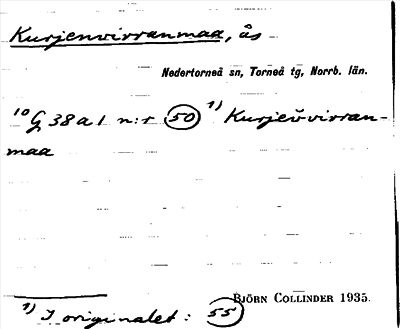 Kurjenvirranmaa, ås
Nedertorneå sn, Torneå tg, Norrb. län.
10 G 38 a 1 n:r 50 1) Kurjeǹvirran-
maa
BJÖRN COLLINDER 1935.
1) I originalet: 55